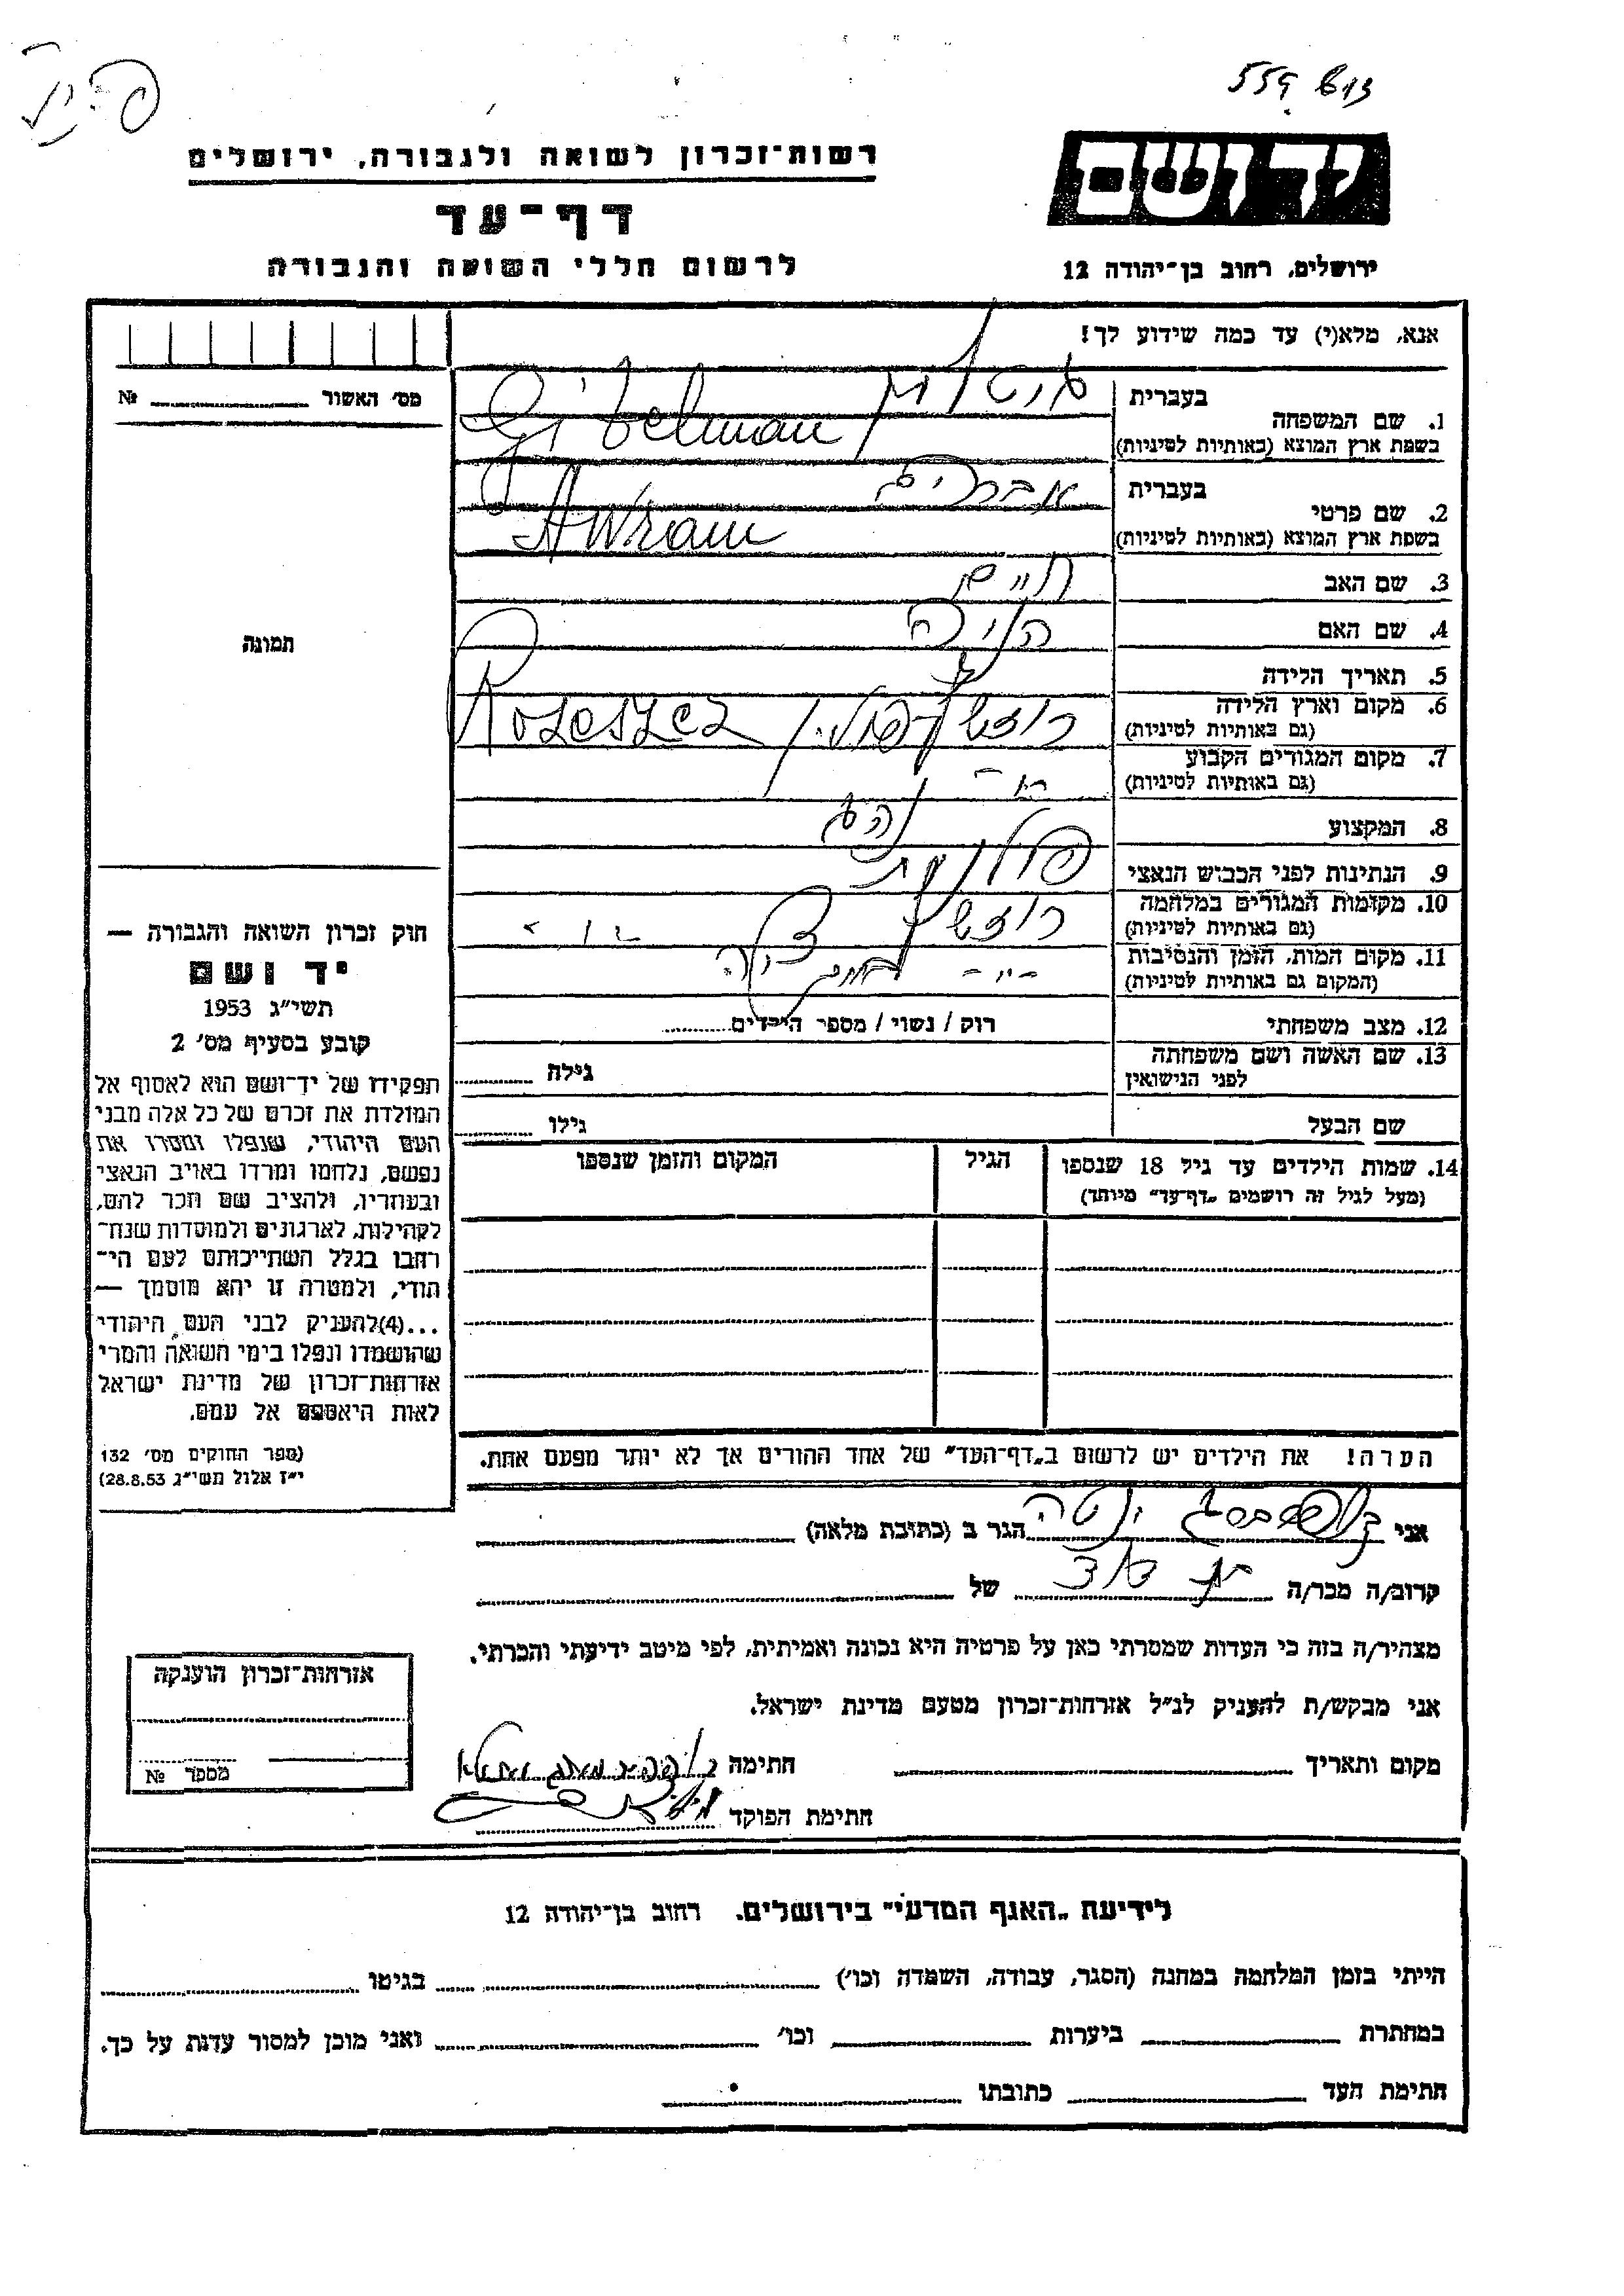 559 813
יד ושם
רשות־זכרון לשואה ולגבורה, ירושלים
דף־עד
לרשום חללי השואה והגבורה
ירושלים, רחוב בן־יהודה 12
אנא, מלא(י) עד כמה שידוע לך!
מס׳ האשור № 
1. שם המשפחה בעברית
בשפת ארץ המוצא (באותיות לטיניות) Gitelman
2. שם פרטי בעברית אברהם
בשפת ארץ המוצא (באותיות לטיניות) Awram
3. שם האב חיים
4. שם האם
5. תאריך הלידה
6. מקום וארץ הלידה
(גם באותיות לטיניות)
7. מקום המגורים הקבוע
(גם באותיות לטיניות)
8. המקצוע
9. הנתינות לפני הכבוש הנאצי
10. מקומות המגורים במלחמה
(גם באותיות לטיניות)
11. מקום המות, הזמן והנסיבות
(המקום גם באותיות לטיניות)
12. מצב משפחתי רוק / נשוי / מספר הילדים
13. שם האשה ושם משפחתה
לפני הנישואין גילה
שם הבעל גילו
14. שמות הילדים עד גיל 18 שנספו הגיל המקום והזמן שנספו
(מעל לגיל זה רושמים „דף־עד” מיוחד)
תמונה
חוק זכרון השואה והגבורה —
יד ושם
תשי״ג 1953
קובע בסעיף מס׳ 2
תפקידו של יד־ושם הוא לאסוף אל
המולדת את זכרם של כל אלה מבני
העם היהודי, שנפלו ומסרו את
נפשם, נלחמו ומרדו באויב הנאצי
ובעוזריו, ולהציב שם וזכר להם,
לקהילות, לארגונים ולמוסדות שנח־
רבו בגלל השתייכותם לעם הי־
הודי, ולמטרה זו יהא מוסמך —
...(4)להעניק לבני העם היהודי
שהושמדו ונפלו בימי השואה והמרי
אזרחות־זכרון של מדינת ישראל
לאות היאספם אל עמם.
(ספר החוקים מס׳ 132
י״ז אלול תשי״ג 28.8.53)
הערה! את הילדים יש לרשום ב„דף־העד” של אחד ההורים אך לא יותר מפעם אחת.
אני הגר ב (כתובת מלאה)
קרוב/ה מכר/ה של
מצהיר/ה בזה כי העדות שמסרתי כאן על פרטיה היא נכונה ואמיתית, לפי מיטב ידיעתי והכרתי.
אני מבקש/ת להעניק לנ״ל אזרחות־זכרון מטעם מדינת ישראל.
מקום ותאריך חתימה
חתימת הפוקד
אזרחות־זכרון הוענקה
מספר №
לידיעת „האגף המדעי” בירושלים. רחוב בן־יהודה 12
הייתי בזמן המלחמה במחנה (הסגר, עבודה, השמדה וכו׳) בגיטו
במחתרת ביערות וכו׳ ואני מוכן למסור עדות על כך.
חתימת העד כתובתו